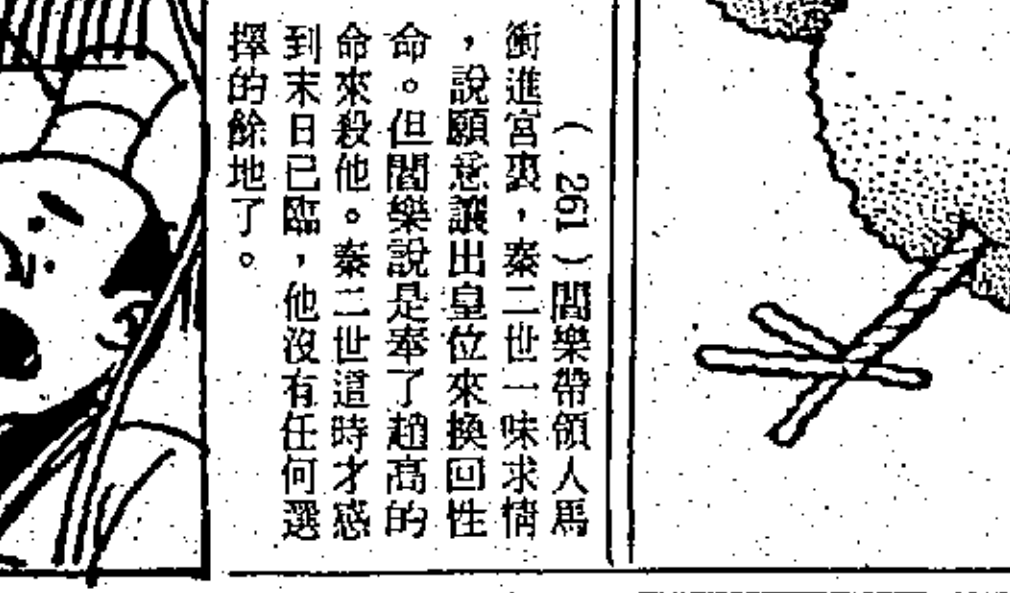 （261）閻樂帶領人馬
衝進宮裏，秦二世一味求情
，說願意讓出皇位來換回性
命。但閻樂說是奉了趙高的
命來殺他。秦二世這時才感
到末日已臨，他沒有任何選
擇的餘地了。